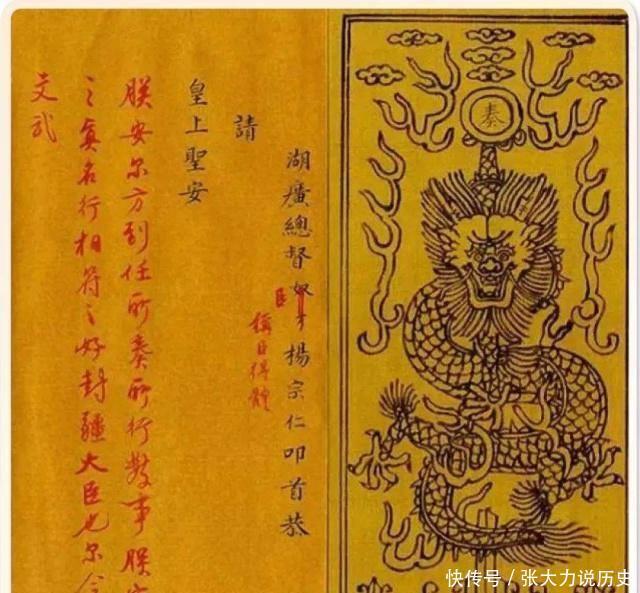 奏
湖廣總督奴才楊宗仁叩首恭
臣
稱臣得體
請
皇上聖安
朕安尔方到任所奏所行數事朕
之真名行相符之好封疆大臣也尔
文武
快传号 / 张大力说历史